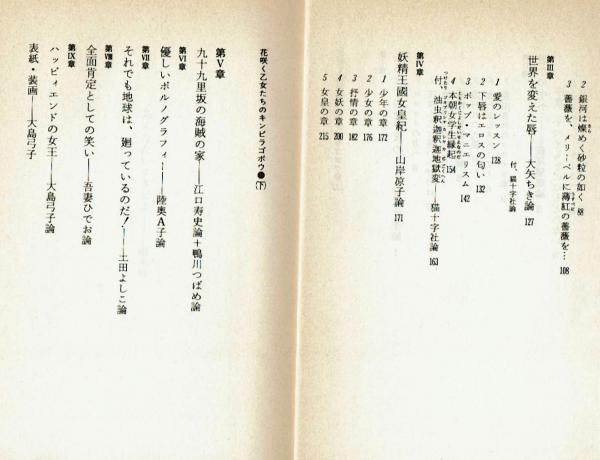 2 銀河は燦めく砂粒の如く
3 薔薇を、メリーベルに薄紅の薔薇を… 108
第Ⅲ章
世界を変えた唇——大矢ちき論 127
付、猫十字社論
1 愛のレッスン 128
2 下唇はエロスの匂い 132
3 ポップ・マニエリスム 142
4 本朝女学生縁起 154
付、油虫釈迦釈迦地獄変——猫十字社論 163
第Ⅳ章
妖精王國女皇紀——山岸凉子論 171
1 少年の章 172
2 少女の章 176
3 抒情の章 182
4 女妖の章 200
5 女皇の章 215
花咲く乙女たちのキンピラゴボウ●(下)
第Ⅴ章
九十九里坂の海賊の家——江口寿史論+鴨川つばめ論
第Ⅵ章
優しいポルノグラフィー——陸奥A子論
第Ⅶ章
それでも地球は、廻っているのだ!——土田よしこ論
第Ⅷ章
全面肯定としての笑い——吾妻ひでお論
第Ⅸ章
ハッピィエンドの女王——大島弓子論
表紙・装画——大島弓子